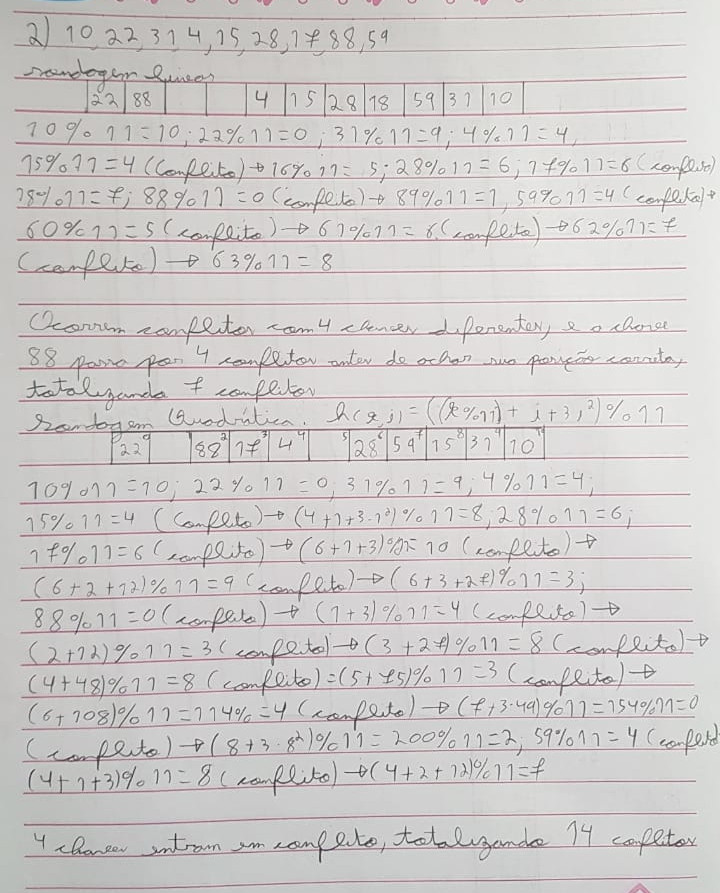 2) 10, 22, 31, 4, 15, 28, 17, 88, 59
sondagem linear
22 88 4 15 28 18 59 31 10
10%11=10; 22%11=0; 31%11=9; 4%11=4,
15%11=4 (Conflito)→16%11=5; 28%11=6; 17%11=6 (conflito)
18%11=7; 88%11=0 (conflito)→89%11=1, 59%11=4 (conflito)→
60%11=5 (conflito)→61%11=6 (conflito)→62%11=7
(conflito)→63%11=8
Ocorrem conflitos com 4 chaves diferentes, e a chave
88 passa por 4 conflitos antes de achar sua posição correta,
totalizando 7 conflitos
Sondagem Quadrática. h(x,i)=((x%11)+i+3i²)%11
22⁰ 88² 17³ 4⁴ 5 28⁶ 59⁷ 15⁸ 31⁹ 10
10%11=10; 22%11=0, 31%11=9; 4%11=4;
15%11=4 (Conflito)→(4+1+3·1²)%11=8, 28%11=6;
17%11=6 (conflito)→(6+1+3)%11=10 (conflito)→
(6+2+12)%11=9 (conflito)→(6+3+27)%11=3;
88%11=0 (conflito)→(1+3)%11=4 (conflito)→
(2+12)%11=3 (conflito)→(3+27)%11=8 (conflito)→
(4+48)%11=8 (conflito)=(5+75)%11=3 (conflito)→
(6+108)%11=114%=4 (conflito)→(7+3·49)%11=154%11=0
(conflito)→(8+3·8²)%11=200%11=2, 59%11=4 (conflito
(4+1+3)%11=8 (conflito)→(4+2+12)%11=7
4 chaves entram em conflito, totalizando 14 coflitos